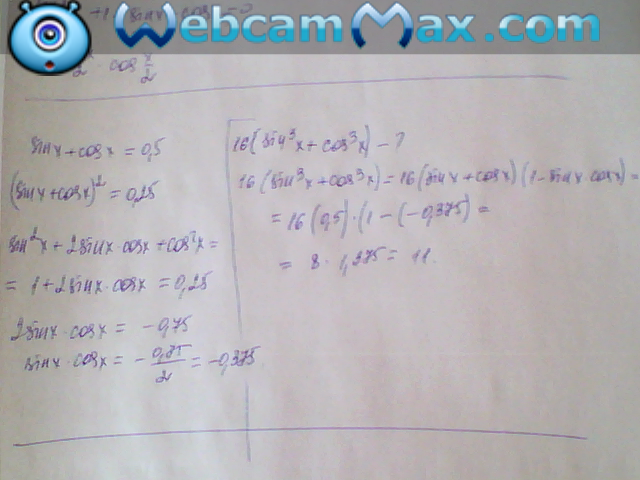 WebcamMax.com
cos x/2
sinx + cosx = 0,5
(sinx + cosx)² = 0,25
sin²x + 2sinx · cosx + cos²x =
= 1 + 2sinx · cosx = 0,25
2sinx · cosx = -0,75
sinx · cosx = - 0,75/2 = -0,375
16(sin³x + cos³x) - ?
16(sin³x + cos³x) = 16(sinx + cosx)(1 - sinx cosx) =
= 16(0,5) · (1 - (-0,375) =
= 8 · 1,375 = 11.